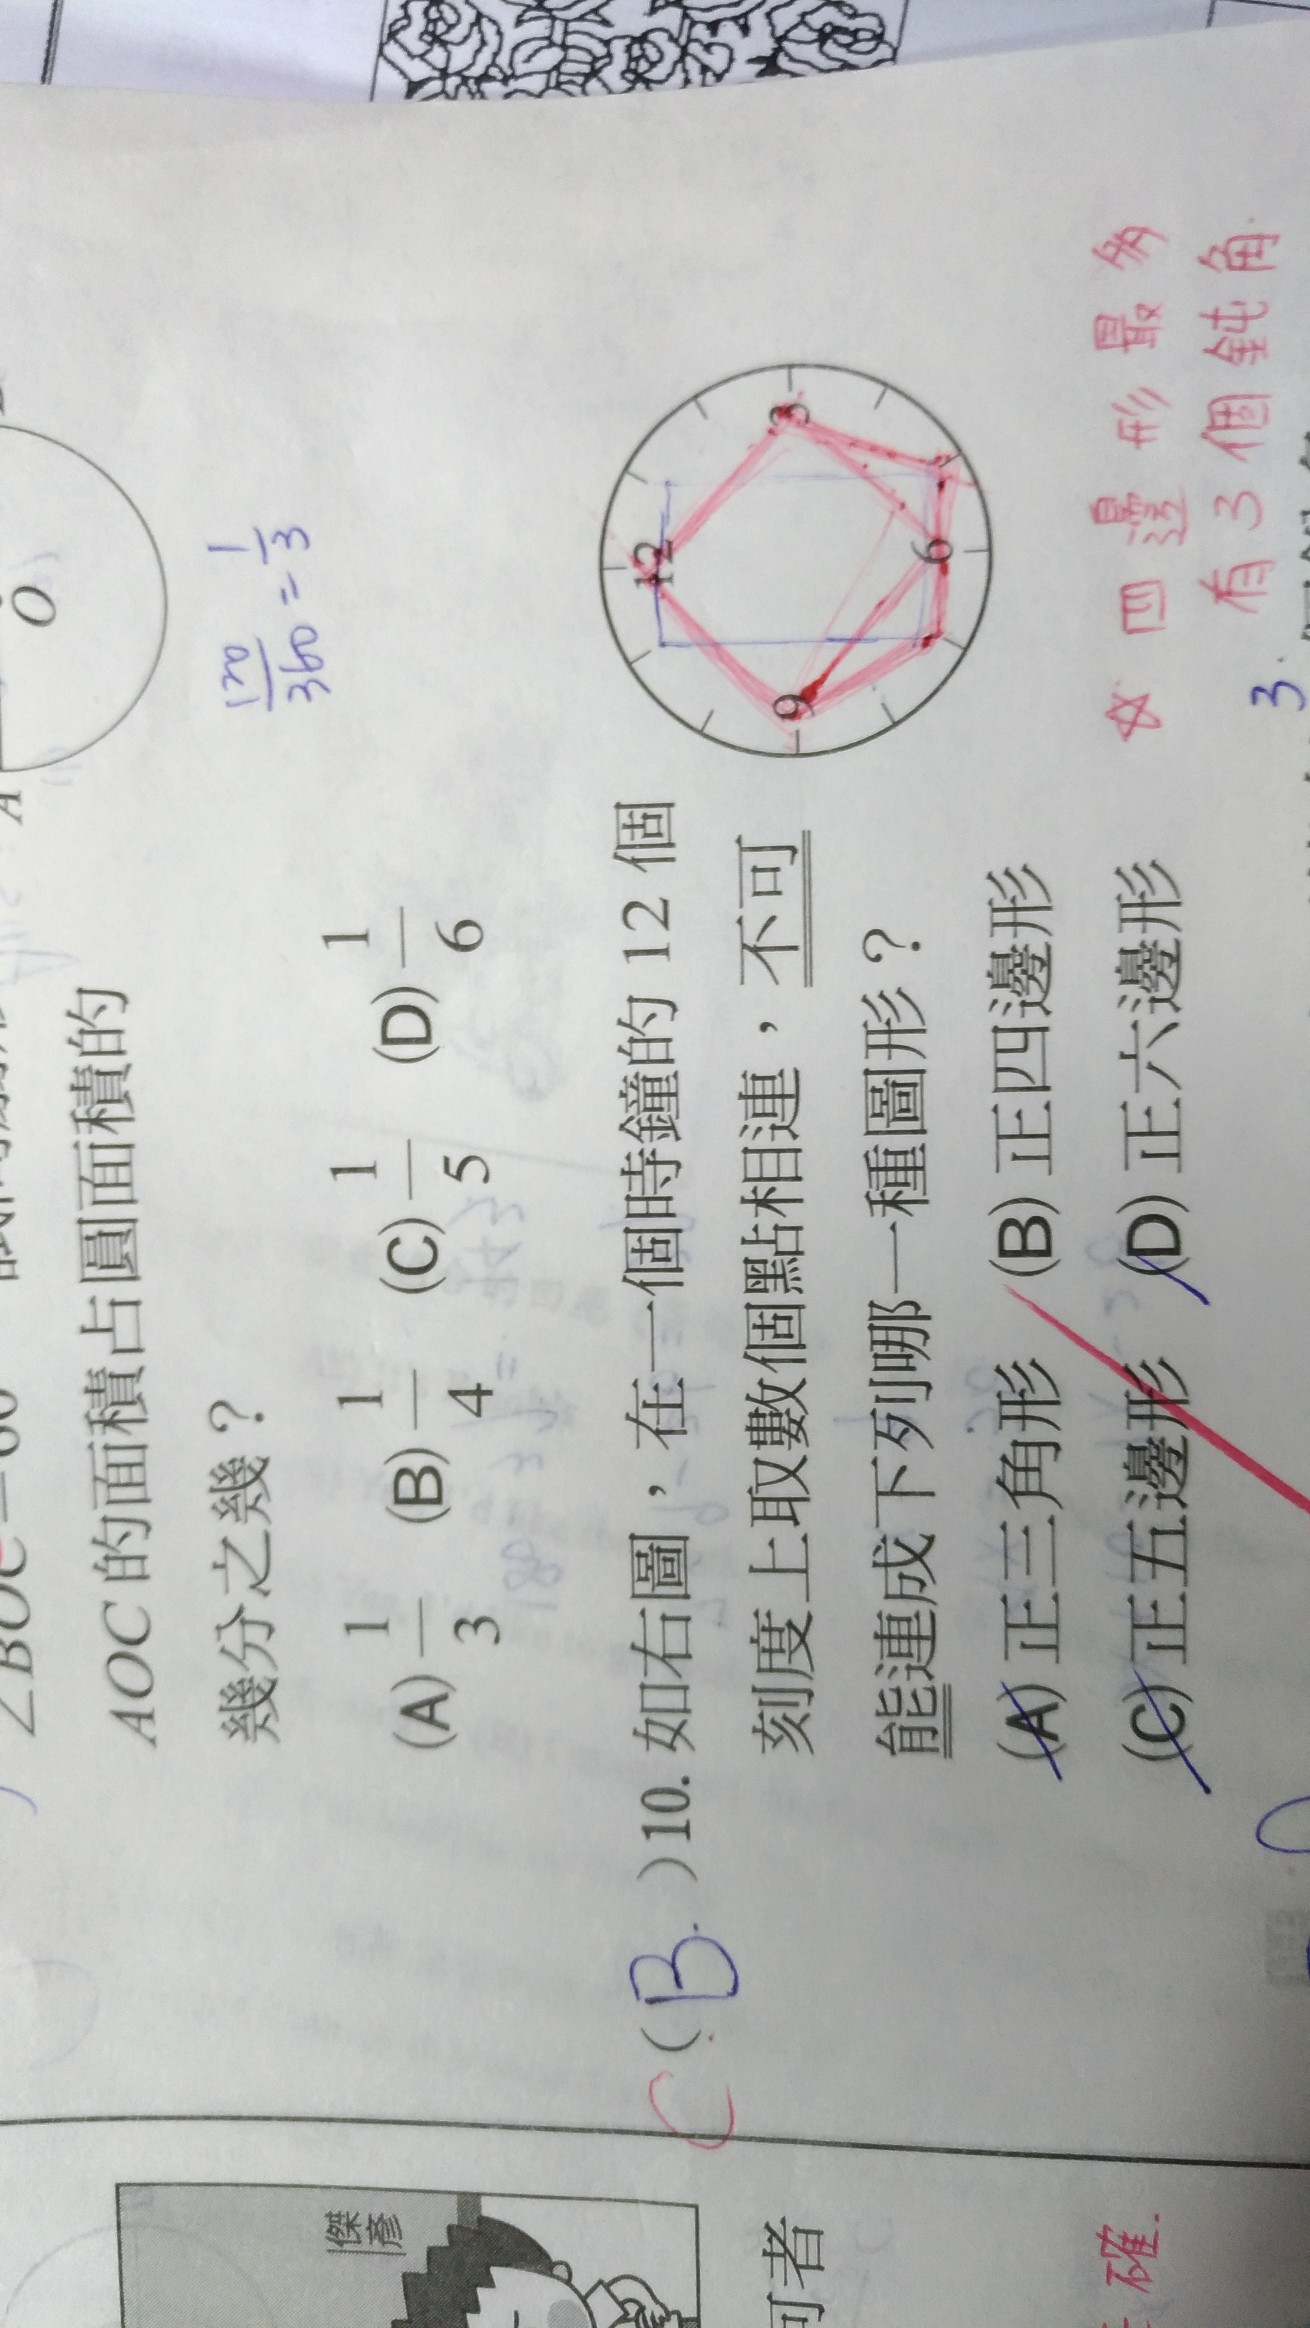 O
A
∠BOC=60°
AOC 的面積占圓面積的
幾分之幾？
120/360 = 1/3
(A) 1/3 (B) 1/4 (C) 1/5 (D) 1/6
C ( B )10. 如右圖，在一個時鐘的 12 個
刻度上取數個點相連，不可
能連成下列哪一種圖形？
(A) 正三角形 (B) 正四邊形
(C) 正五邊形 (D) 正六邊形
12
3
6
9
☆ 四邊形最多
有3個鈍角.
3.
傑彥
何者
確.